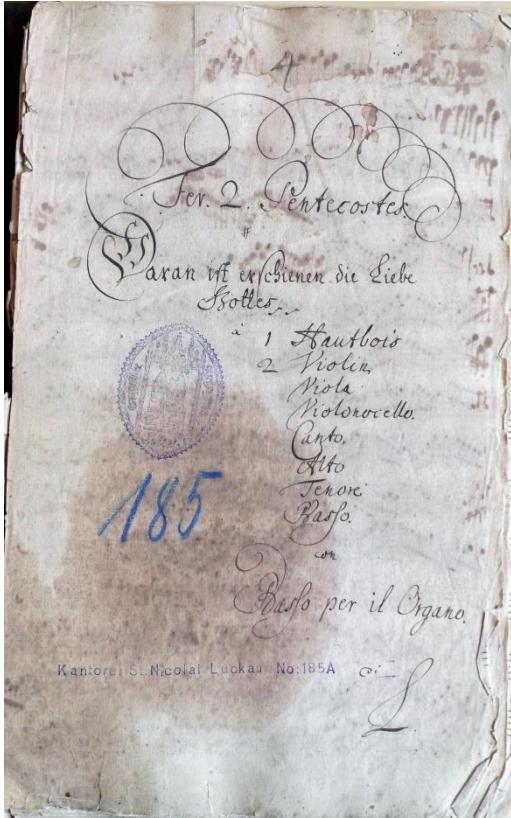 4
Fer. 2. Pentecostes
Daran ist erschienen die Liebe
Gottes.
à
1 Hautbois
2 Violin
Viola
Violoncello.
Canto.
Alto
Tenore
Basso.
con
Basso per il Organo.
185
Kantorei St. Nicolai Luckau No: 185A